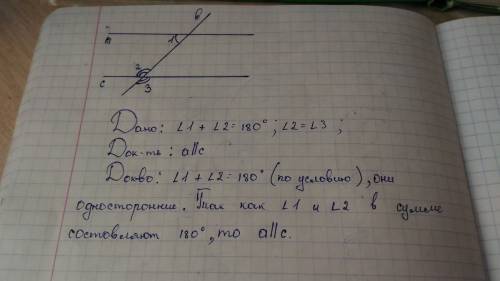 в
а
1
2
с
3
Дано: ∠1 + ∠2 = 180°; ∠2 = ∠3 ;
Док-ть: a||c
Док-во: ∠1 + ∠2 = 180° (по условию), они
односторонние. Так как ∠1 и ∠2 в сумме
состовляют 180°, то a||c.